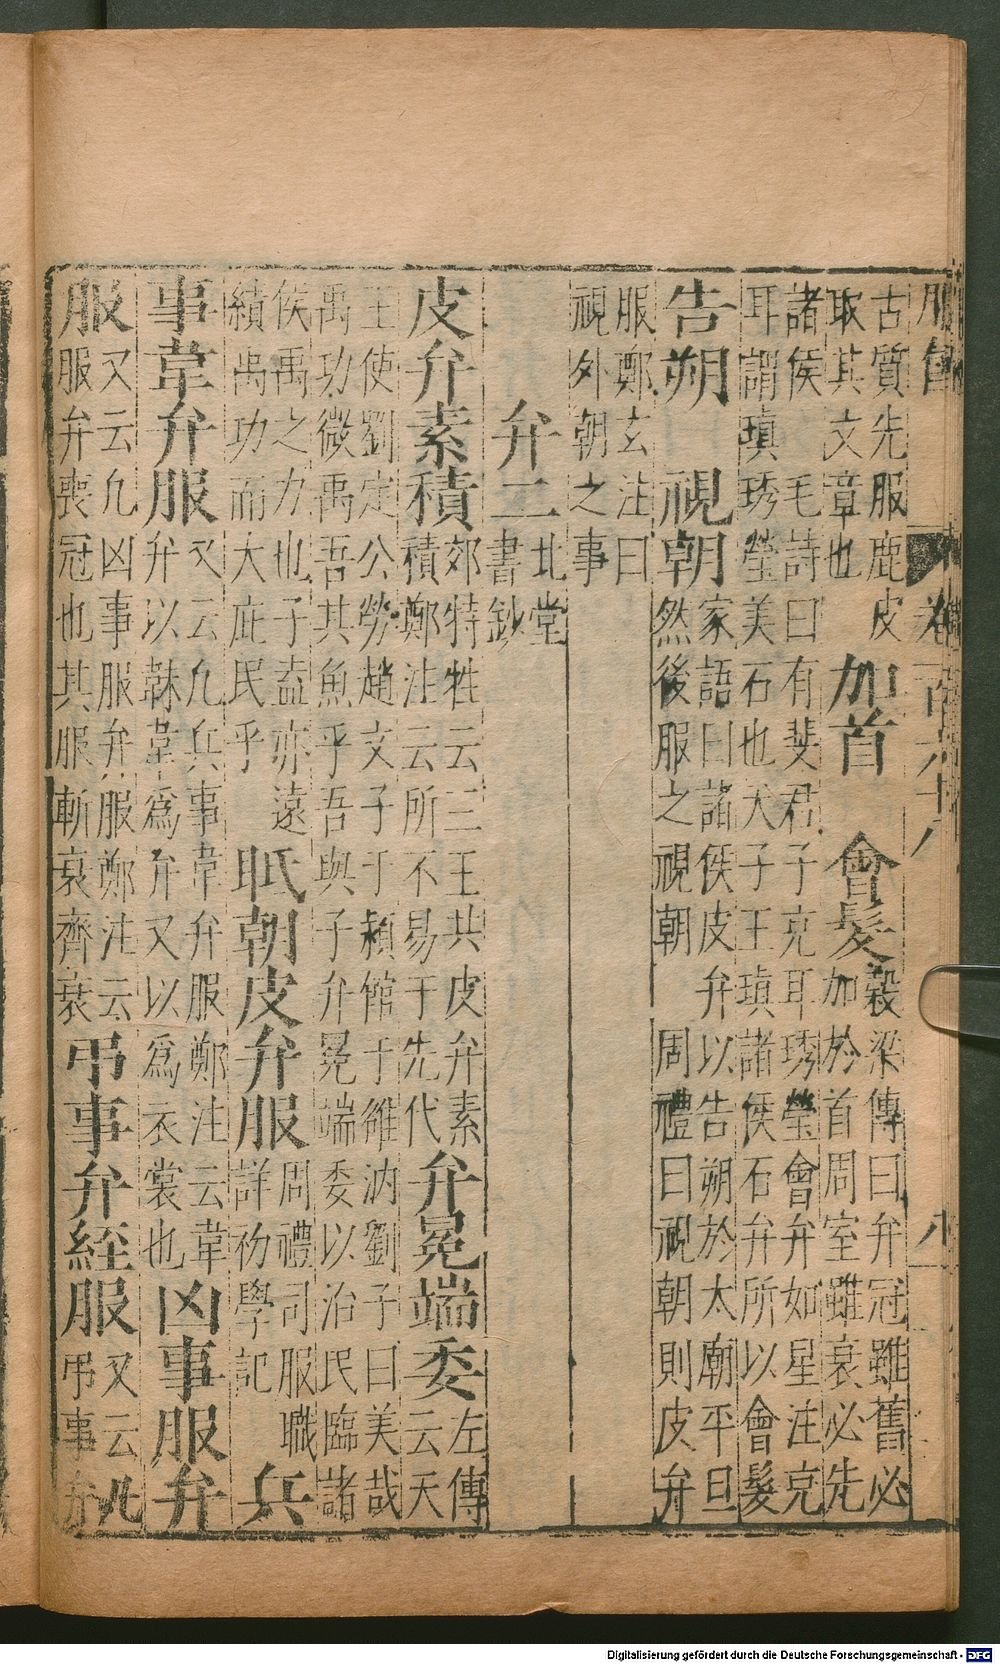 卷一百六十八　八
古質先服鹿皮
取其文章也
加首　會髮
穀梁傳曰弁冠雖舊必
加於首周室雖衰必先
諸侯　毛詩曰有斐君子克耳琇瑩會弁如星注克
耳謂瑱琇瑩美石也天子王瑱諸侯石弁所以會髮
告朔　視朝
家語曰諸侯皮弁以告朔於太廟平旦
然後服之視朝　周禮曰視朝則皮弁
服鄭玄注曰
視外朝之事
弁二
北堂
書鈔
皮弁素積
郊特牲云三王共皮弁素
積鄭注云所不易于先代
弁冕端委
左傳
云天
王使劉定公勞趙文子于潁館于雒汭劉子曰美哉
禹功微禹吾其魚乎吾與子弁冕端委以治民臨諸
侯禹之力也子盍亦遠
績禹功而大庇民乎
眡朝皮弁服
周禮司服職
詳礿學記
兵
事韋弁服
又云凡兵事韋弁服鄭注云韋
弁以韎韋爲弁又以爲衣裳也
凶事服弁
服
又云凡凶事服弁服鄭注云
服弁喪冠也其服斬衰齊衰
弔事弁絰服
又云凡
弔事弁
Digitalisierung gefördert durch die Deutsche Forschungsgemeinschaft - DFG